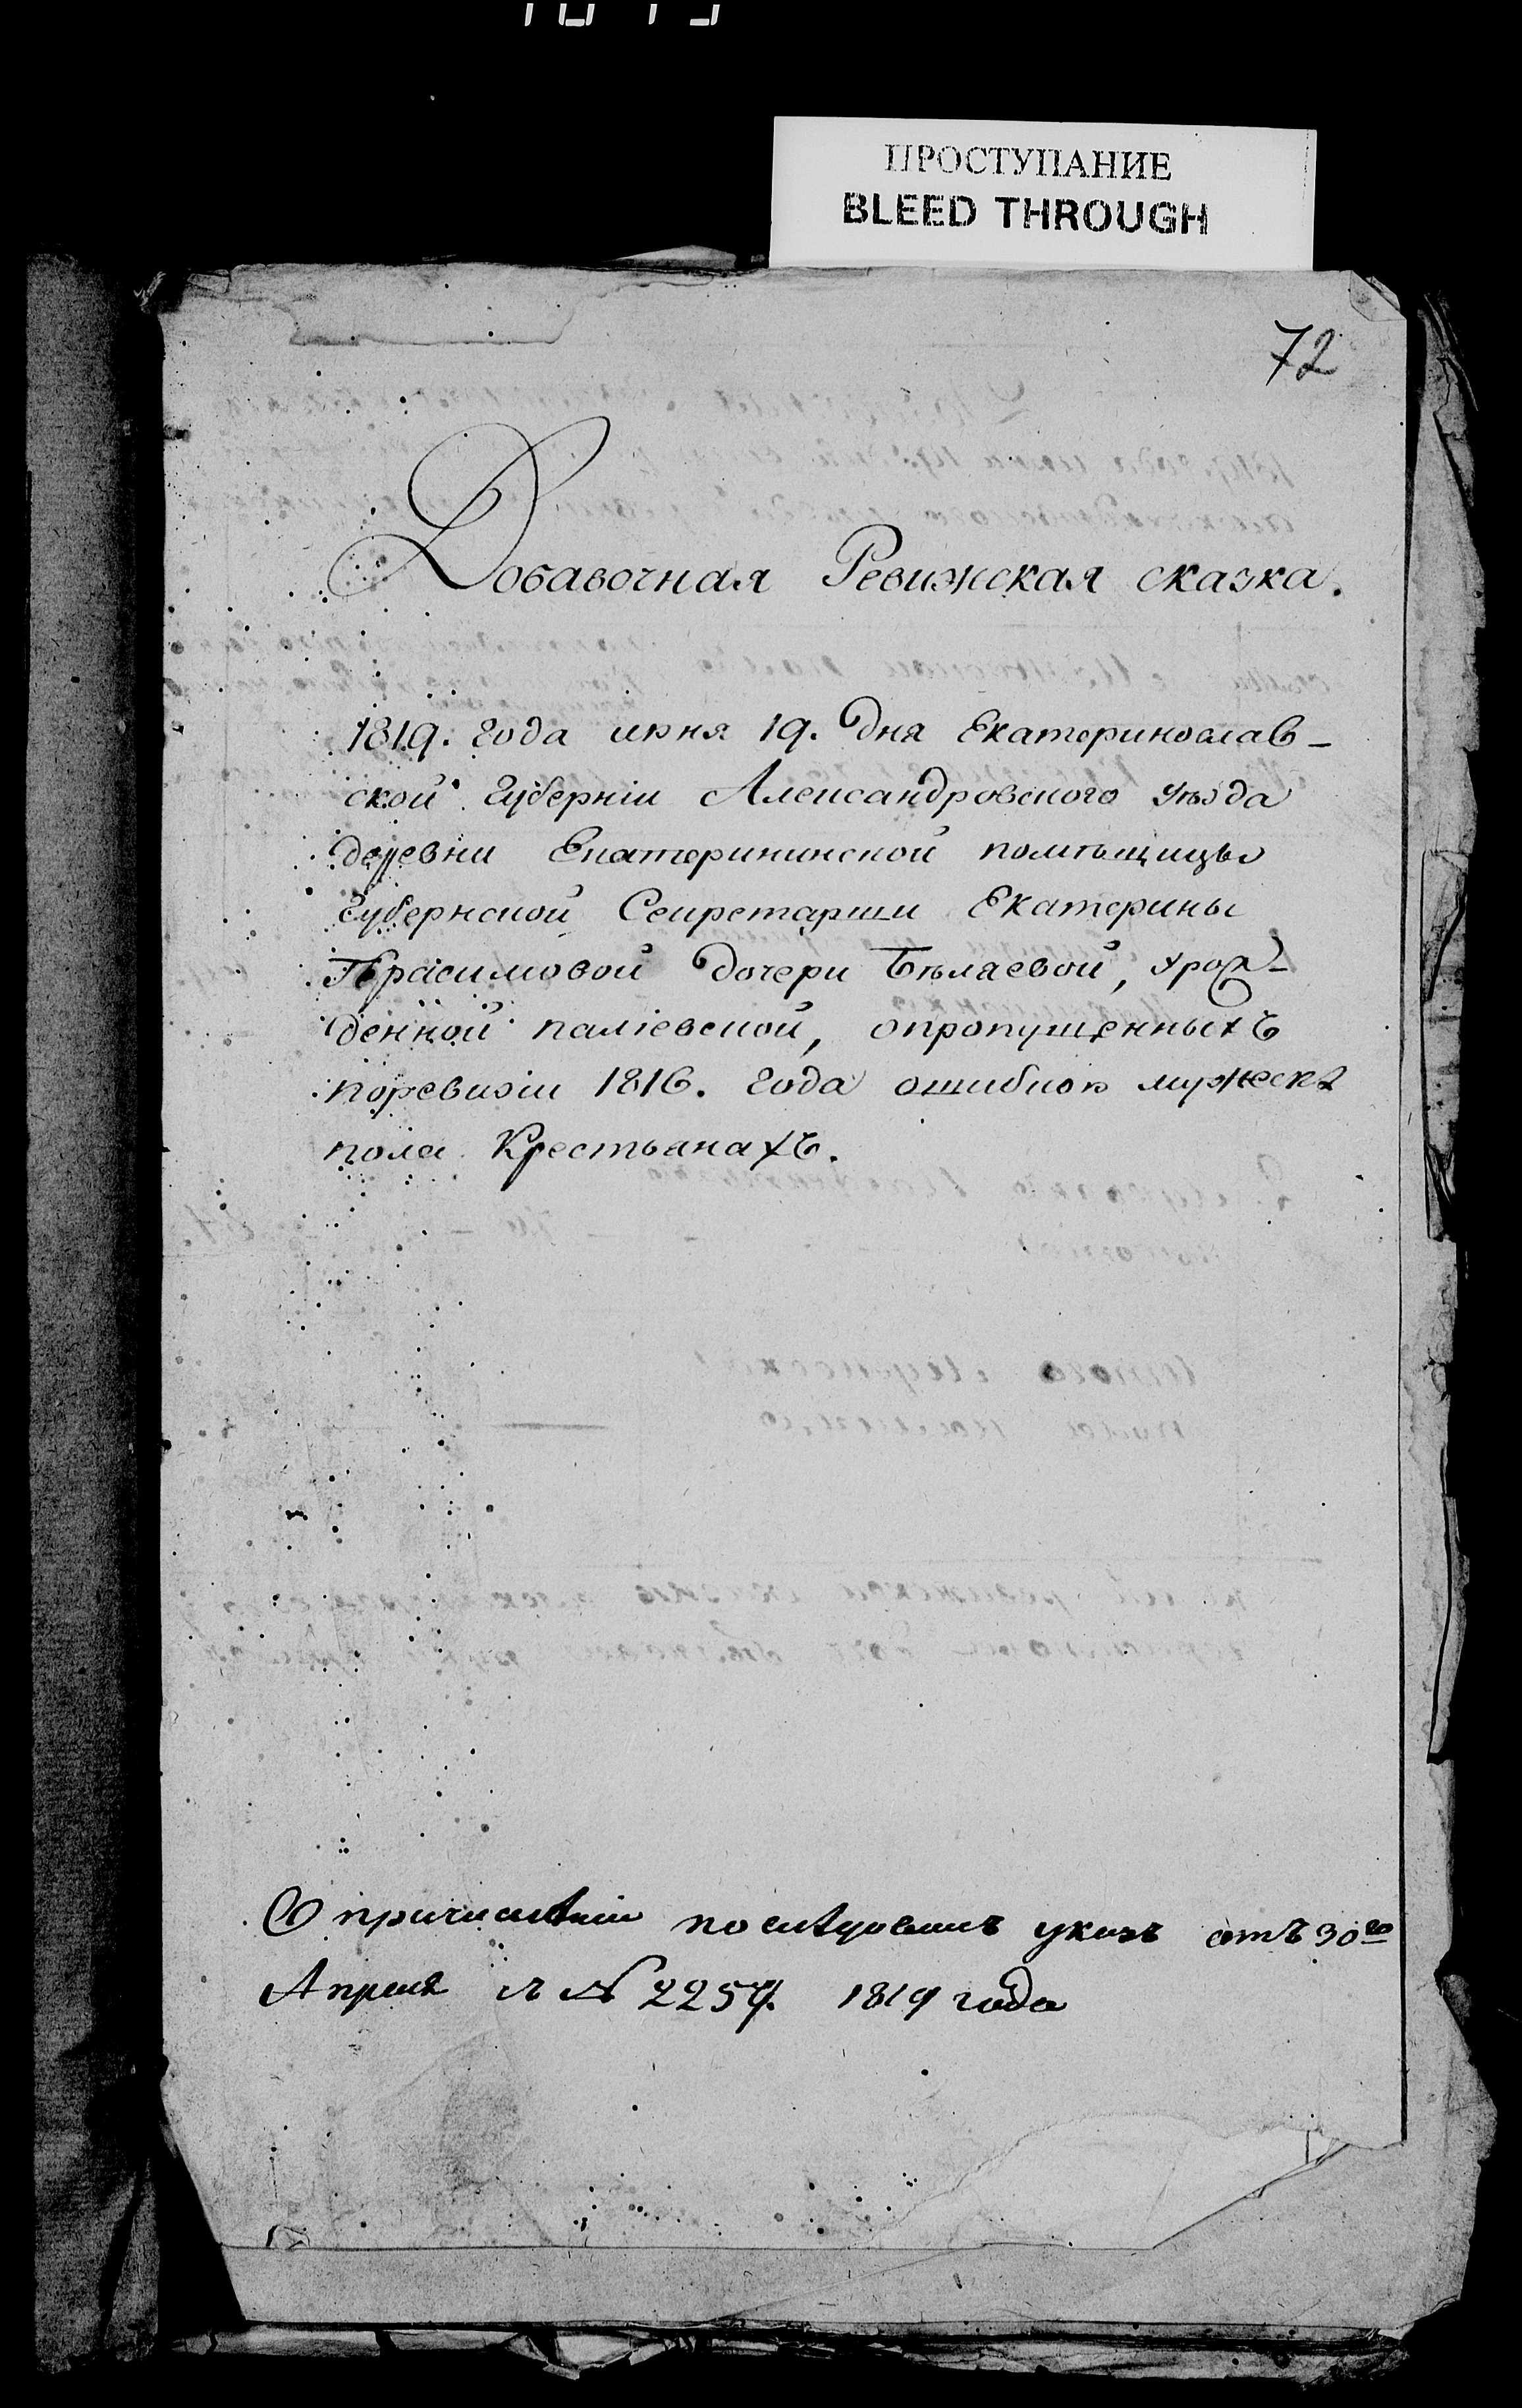 ПРОСТУПАНИЕ
BLEED THROUGH
72
Добавочная Ревижская сказка.
1819. года июня 19. дня Екатеринослав-
ской Губерніи Александровского уѣзда
деревни Екатерининской помѣщицы
Губернской Секретарши Екатерины
Герасимовой дочери Бѣляевой, урож-
денной паліевской, опропущенныхъ
поревизіи 1816. года ошибкою мужеска
пола Крестьянахъ.
О причисленіи последовалъ указъ отъ 30го
Апреля № 1819 года